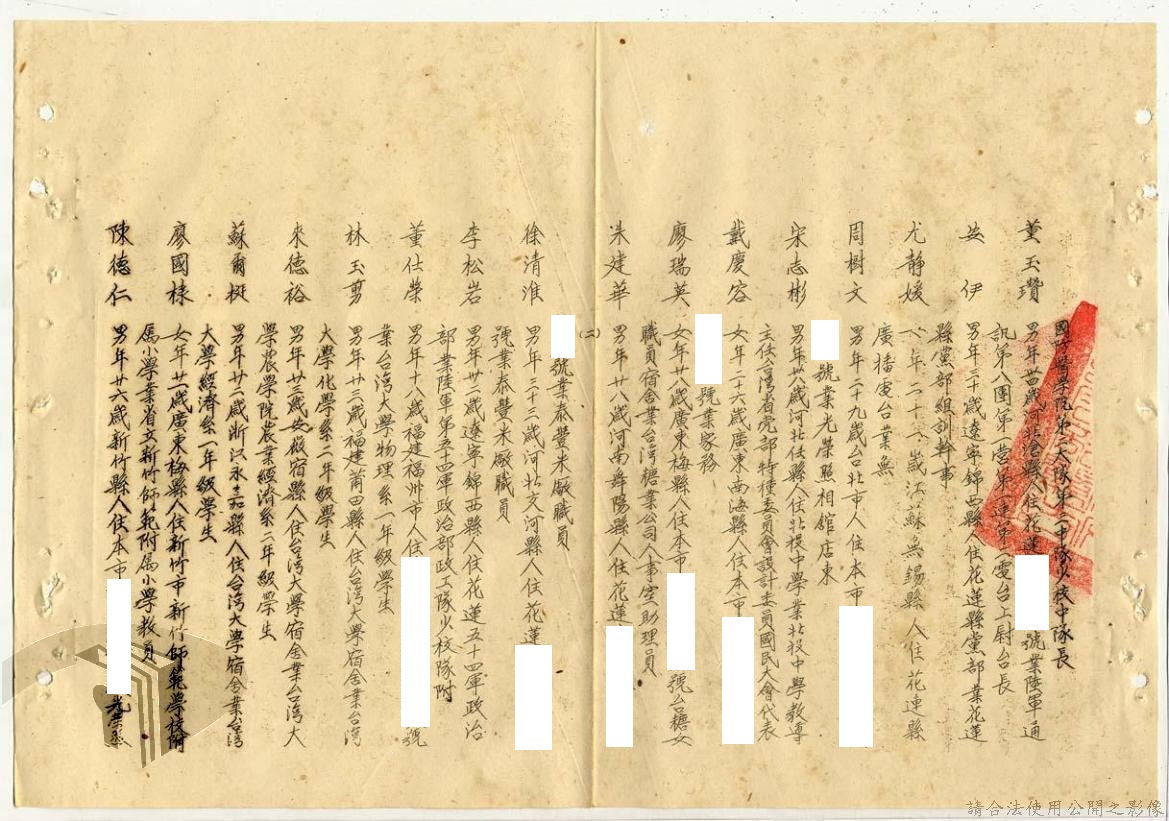 國防醫學院第二大隊第一中隊少校中隊長
董玉瓚 男年廿四歲河北滄縣人住花蓮 號業陸軍通
訊第八團第一營第一連第 電台上尉台長
安伊 男年三十歲遼寧錦西縣人住花蓮縣黨部業花蓮
縣黨部組訓幹事
尤靜媛 女年二十八歲江蘇無錫縣人住花蓮縣
廣播電台業無
周樹文 男年二十九歲台北市人住本市
號業光榮照相館店東
宋志彬 男年廿八歲河北任縣人住北投中學業北投中學教導
主任台灣省党部特種委員會設計委員國民大會代表
戴慶容 女年二十六歲廣東南海縣人住本市
號業家務
廖瑞英 女年廿八歲廣東梅縣人住本市 號台糖女
職員宿舍業台灣糖業公司人事室助理員
朱建華 男年廿八歲河南舞陽縣人住花蓮
(二)
號業泰豐米廠職員
徐清淮 男年三十三歲河北交河縣人住花蓮
號業泰豐米廠職員
李松岩 男年廿二歲遼寧錦西縣人住花蓮五十四軍政治
部業陸軍第五十四軍政治部政工隊少校隊附
董仕榮 男年十八歲福建福州市人住 號
業台灣大學物理系一年級學生
林玉勇 男年廿三歲福建莆田縣人住台灣大學宿舍業台灣
大學化學系二年級學生
來德裕 男年廿二歲安徽宿縣人住台灣大學宿舍業台灣大
學農學院農業經濟系二年級學生
蘇爾挺 男年廿二歲浙江永嘉縣人住台灣大學宿舍業台灣
大學經濟系一年級學生
廖國棣 女年廿一歲廣東梅縣人住新竹市新竹師範學校附
屬小學業省立新竹師範附屬小學教員
陳德仁 男年廿六歲新竹縣人住本市 光榮照
請合法使用公開之影像